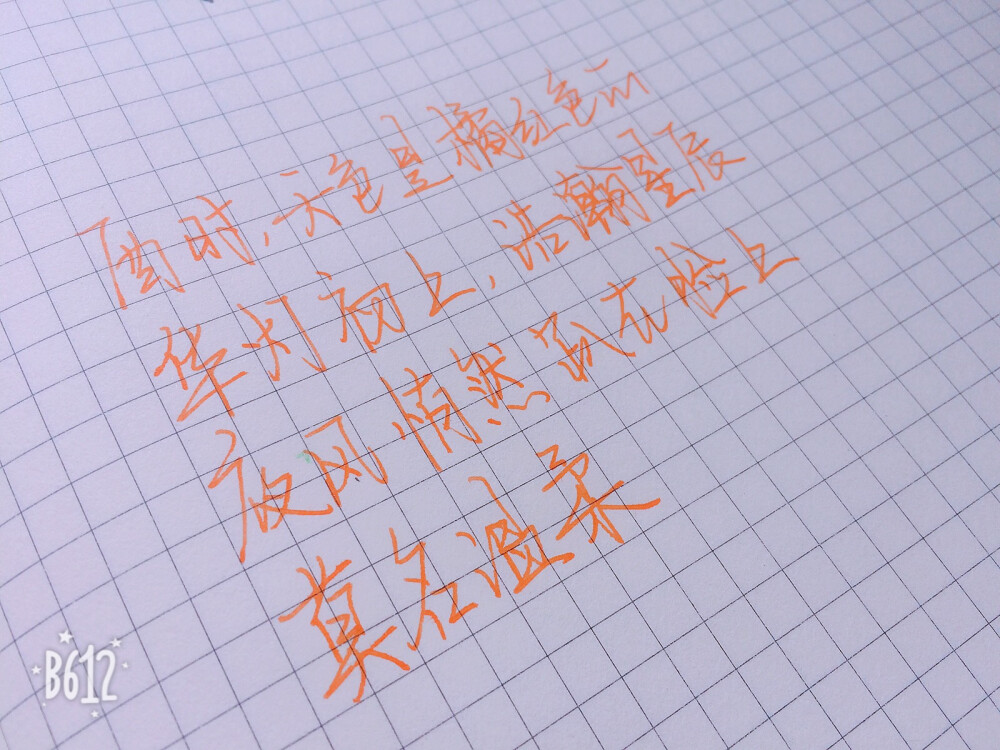 酉时,天色是橘红色的
华灯初上,浩瀚星辰
夜风悄然趴在脸上
莫名温柔
B612